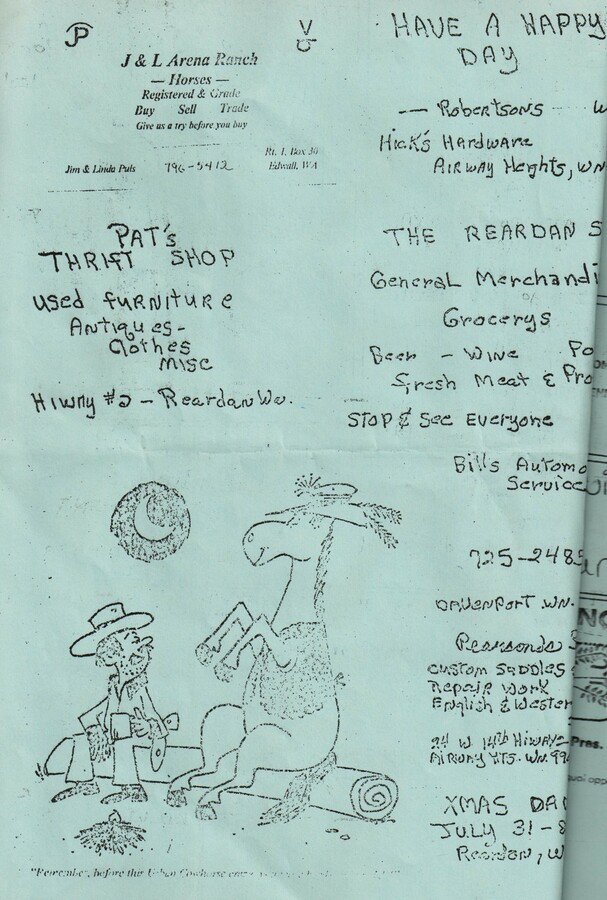 J & L Arena Ranch
— Horses —
Registered & Grade
Buy Sell Trade
Give us a try before you buy
Rt. 1, Box 30
Jim & Linda Puls 796-5412 Edwall, WA
PAT's
THRIFT SHOP
used furniture
Antiques-
Clothes
Misc
Hiway #2 - Reardan Wn.
"Remember, before this Urban Cowhorse
HAVE A HAPPY
DAY
— Robertsons
Hick's Hardware
Airway Heights, WN
THE REARDAN S
General Merchandi
Grocerys
Beer - Wine Po
Fresh Meat & Pro
STOP & See Everyone
Bill's Automo
Service
725-2485
DAVENPORT WN.
Pearsonds S
Custom Saddles
Repair Work
English & Wester
W. 14th Hiway
Airway HTS. WN. 99
XMAS DA
July 31 - 8
Reardan, W
Pres.